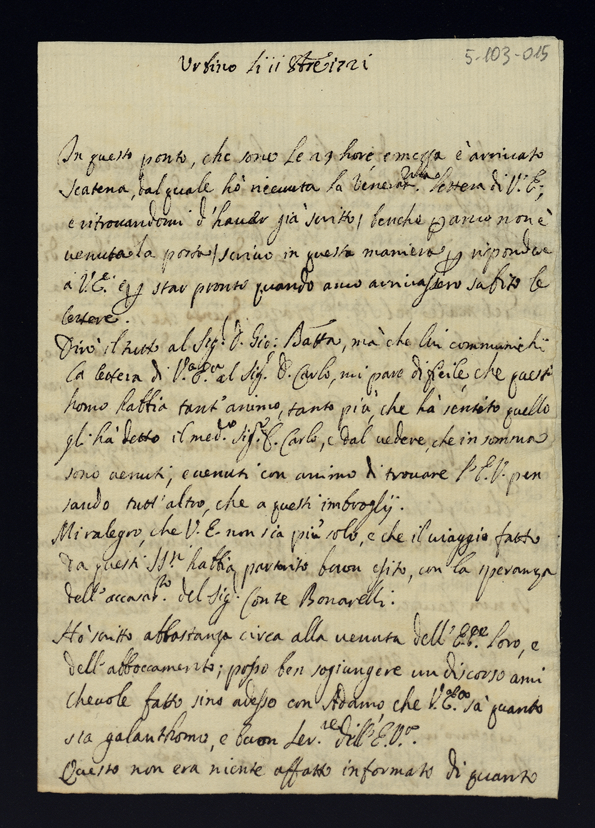 5-103-015
Urbino li 11 8bre 1721
In questo ponto, che sono le 29 hore e mezza è arrivato
Scatena, dal quale hò ricevuta la Venerat.ma lettera di V.E.,
e ritrovandomi d'haver già scritto / benche p anco non è
venuta la posta / scrivo in questa maniera p rispondere
à V.E. e p star pronto quando anco arrivassero subito le
lettere.
Dirò il tutto al Sig.r D. Gio: Batta, mà che lui communichi
la lettera di V.a E.a al Sig.r D. Carlo, mi pare dificile che questi
homo habbia tant'animo, tanto più che hà sentito quello
gli hà detto il med.o Sig.r D. Carlo, e dal vedere, che in somma
sono venuti, e venuti con animo di trovare l'E.V. pen
sando tutt'altro, che a questi imbroglij.
Mi ralegro, che V.E. non sia più solo, e che il viaggio fatto
da questi SS.ri habbia partorito buon esito, con la speranza
dell'accasam.to del Sig.r Conte Bonarelli.
Hò scritto abbastanza circa alla venuta dell'E.E. Loro, e
dell'abboccamento; posso ben sogiungere un discorso ami
chevole fatto sino adesso con Adamo che V.E. sà quanto
sia galanthomo, e buon Ser.re dell'E.V.
Questo non era niente affatto informato di quanto